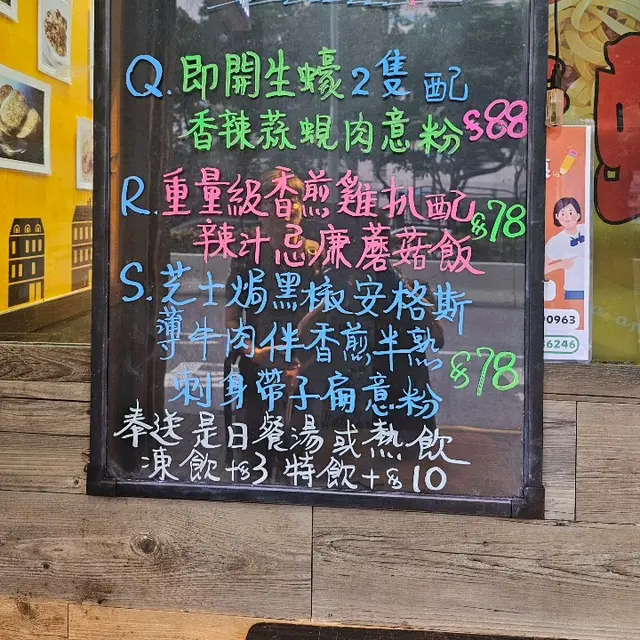 Q.即開生蠔2隻配
香辣蒜蜆肉意粉 $88
R.重量級香煎雞扒配 $78
辣汁忌廉蘑菇飯
S.芝士焗黑椒安格斯
薄牛肉伴香煎半熟
刺身帶子扁意粉 $78
奉送是日餐湯或熱飲
凍飲+$3 特飲+$10
0963
6246